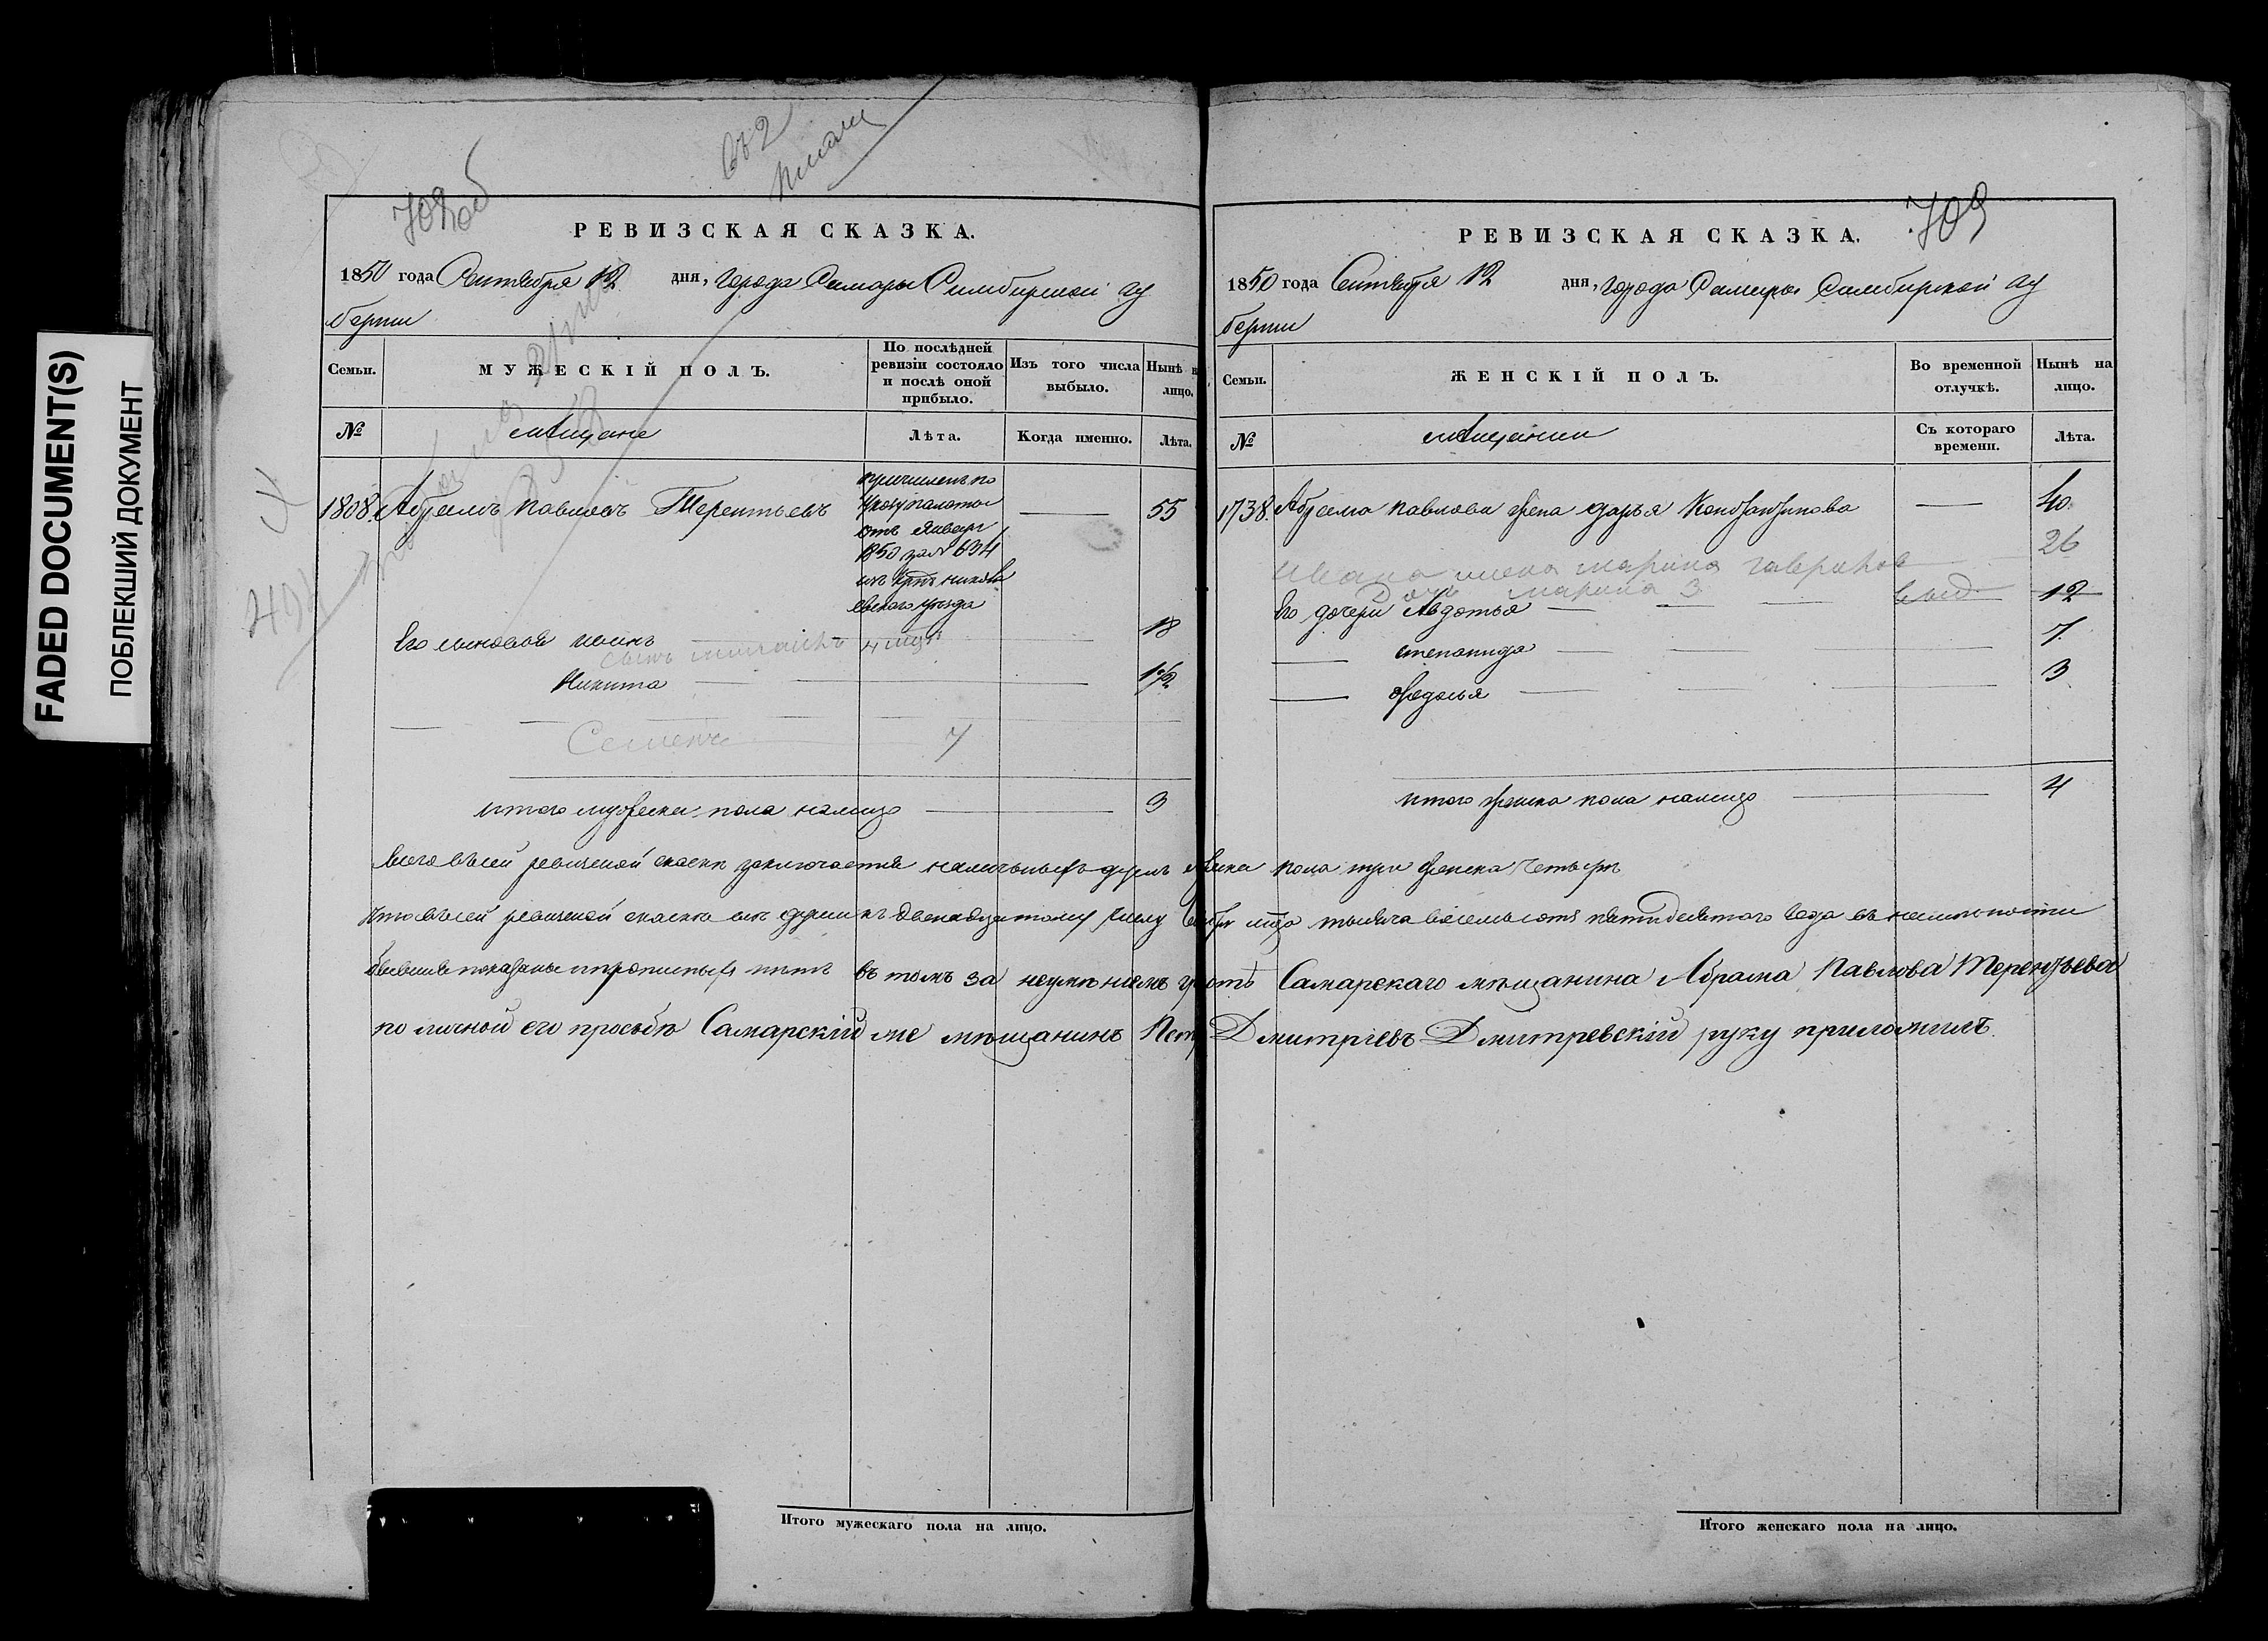 FADED DOCUMENT(S)
ПОБЛЕКШИЙ ДОКУМЕНТ
708об
РЕВИЗСКАЯ СКАЗКА.
1850 года Сентября 12 дня, города Самары Симбирской гу
бернии
Семьи.
МУЖЕСКІЙ ПОЛЪ.
По послѣдней ревизіи состояло и послѣ оной прибыло.
Изъ того числа выбыло.
Нынѣ н лицо.
№
мѣщане
Лѣта.
Когда именно.
Лѣта.
причисленъ по
Указу палаты
отъ Января
1850 за № 634
изъ
уѣзда
1808. Абрамъ Павловъ Терентьевъ — 55
Его сыновья Иванъ — 18
сынъ
Никита — 1 1/2
Семенъ 7
итого мужеска пола налицо — 3
709
РЕВИЗСКАЯ СКАЗКА.
1850 года Сентября 12 дня, города Самары Симбирской гу
бернии
Семьи.
ЖЕНСКІЙ ПОЛЪ.
Во временной отлучкѣ.
Нынѣ на лицо.
№
мѣщанки
Съ котораго времени.
Лѣта.
1738. Абрама Павлова жена Дарья Констянтинова — 40
Ивана жена Марина Гаврилов 26
Дочь Марина 3
Его дочери Авдотья — 12
— степанида — 7
— федосья — 3
итого женска пола налицо — 4
Всего въ сей ревизской сказки заключается наличныхъ душъ мужска пола три женска четыре
Что въ сей ревизской сказке все души къ двенадцатому числу тысяча восемьсотъ пятидесятого года въ наличности
бывшия показаны и прописныхъ нетъ въ томъ за неумѣніемъ грамотѣ Самарскаго мѣщанина Абрама Павлова Терентьева
по личной его просьбѣ Самарскій же мѣщанинъ Петръ Дмитріевъ Дмитревскій руку приложилъ.
Итого мужескаго пола на лицо.
Итого женскаго пола на лицо.